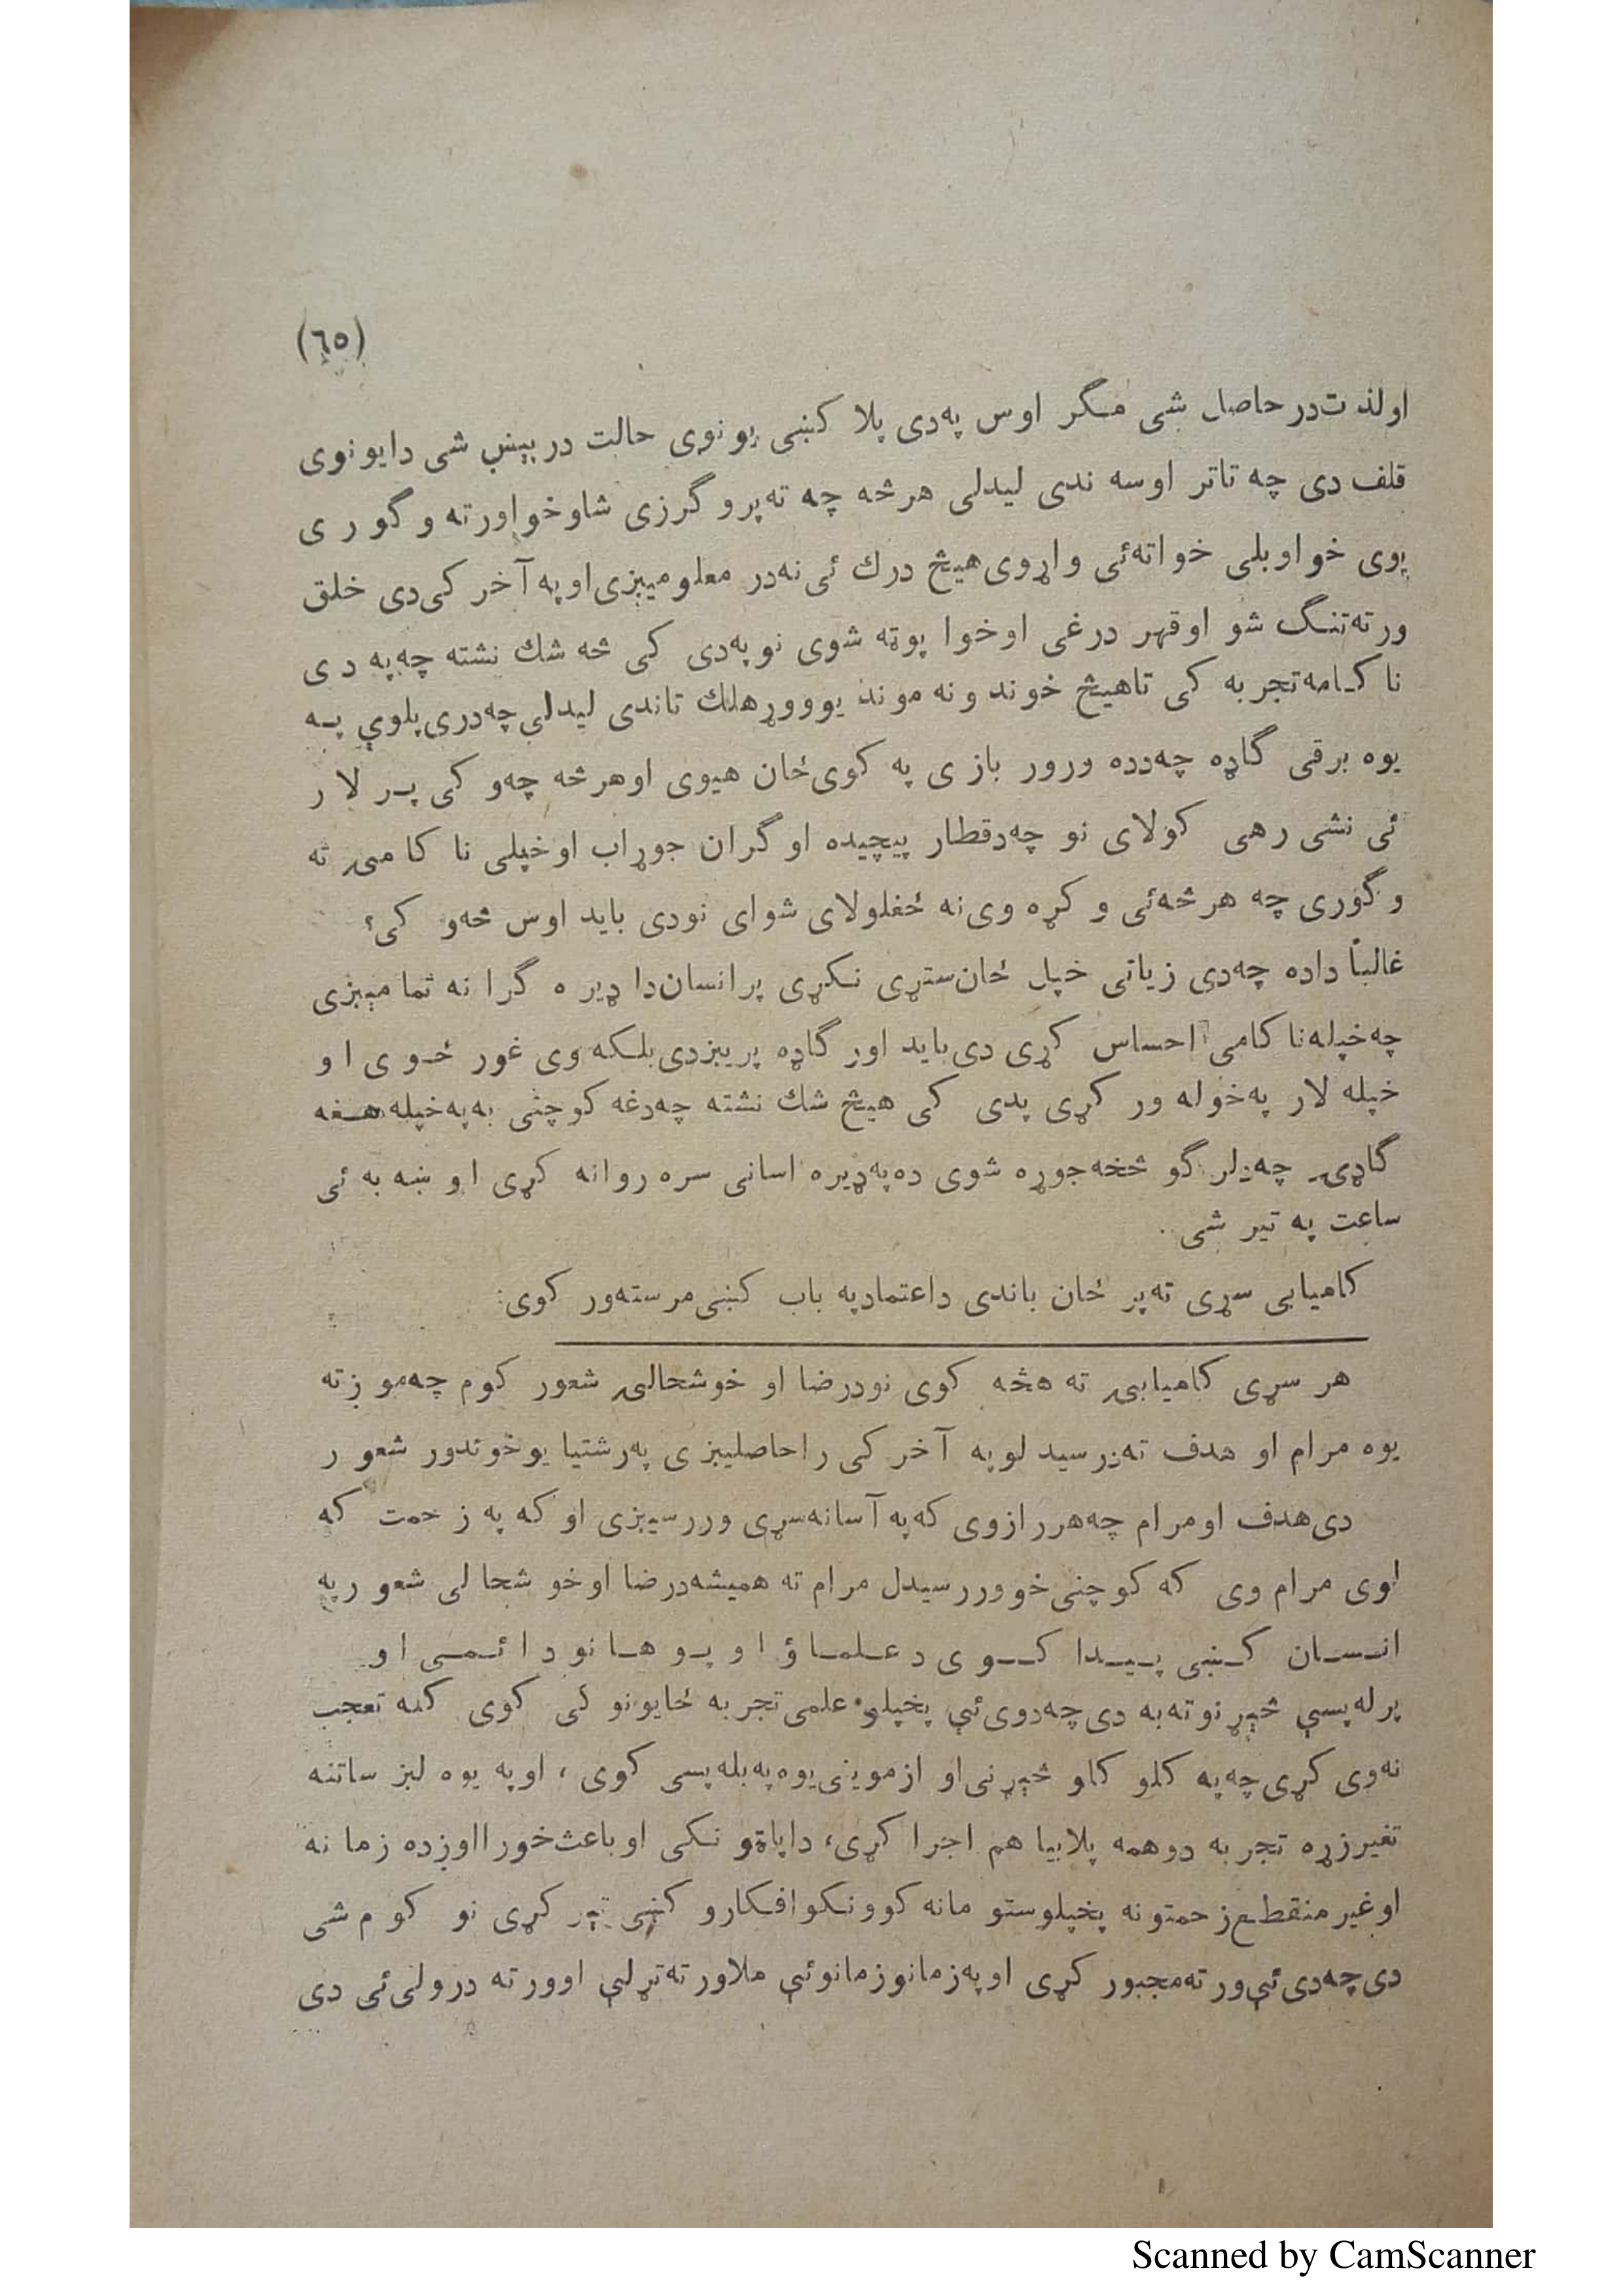 (٦٥)
اولذت در حاصل شی مگر اوس په دی پلا کښی یو نوی حالت درپیښ شی دایو نوی
قلف دی چه تاتر اوسه ندی لیدلی هر څه چه ته پرو گرزی شاوخوا ورته و گو ر ی
یوی خوا وبلی خواته ئی واړوی هیڅ درك ئی نه در معلومیږی او په آخر کی دی خلق
ورته تنگ شو او قهر درغی او خوا پوته شوی نو په دی کی څه شك نشته چه په د ی
نا کامه تجربه کی تا هیڅ خوند ونه موند یو ووړ هلك تا ندی لیدلی چه دری پلوې پـه
یوه برقی گاډه چه دده ورور بازی په کوی ځان هیوی او هر څه چه و کی پـر لا ر
ئی نشی رهی کولای نو چه د قطار پیچیده او گران جوړاب او خپلی نا کامۍ ته
و گوری چه هر څه ئی و کړه وی نه ځغلولای شوای نودی باید اوس څه و کی؟
غالباً داده چه دی زیاتی خپل ځان ستړی نـکړی پر انسان دا ډیر ه گرا نه تمامیږی
چه خپله نا کامی احساس کړی دی باید اور گاډه پریږدی بلـکه وی غور ځـو ی ا و
خپله لار په خوله ور کړی پدی کی هیڅ شك نشته چه دغه کوچنی به په خپله هـغه
گاډۍ چه د لر گو څخه جوړه شوی ده په ډیره اسانی سره روانه کړی ا و ښه به ئی
ساعت په تیر شی.
کامیابی سړی ته پر ځان باندی د اعتماد په باب کښی مرسته ور کوی:
هر سړی کامیابۍ ته هڅه کوی نو د رضا او خوشحالۍ شعور کوم چه مو ږ ته
یوه مرام او هدف ته د رسید لو په آخر کی را حاصلیږ ی په رشتیا یو خوندور شعو ر
دی هدف او مرام چه هر راز وی که په آسانه سړی وررسیږی او که په ز حمت که
لوی مرام وی که کوچنی خو وررسیدل مرام ته همیشه د رضا او خو شحا لی شعو ر په
انـسـان کـښی پـیـدا کــو ی د عـلـمـا ؤ ا و پـو هـا نو د ا ئـمـی ا و
پر له پسې څېړ نو ته به دی چه دوی ئې پخپلو علمی تجربه ځایو نو کی کوی کله تعجب
نه وی کړی چه په کلو کلو څېړنی او ازموینی یوه په بله پسی کوی ، او په یوه لږ ساتنه
تغیر زړه تجربه دوهمه پلا بیا هم اجرا کړی، داپاتو نـکی او باعث خورا اوږده زما نه
او غیر منقطع زحمتو نه پخپلو ستو مانه کوو نـکو افـکارو کښی تېر کړی نو کو م شی
دی چه دی ئې ور ته مجبور کړی او په زمانو زمانو ئې ملا ور ته تړلې او ور ته درولی ئی دی